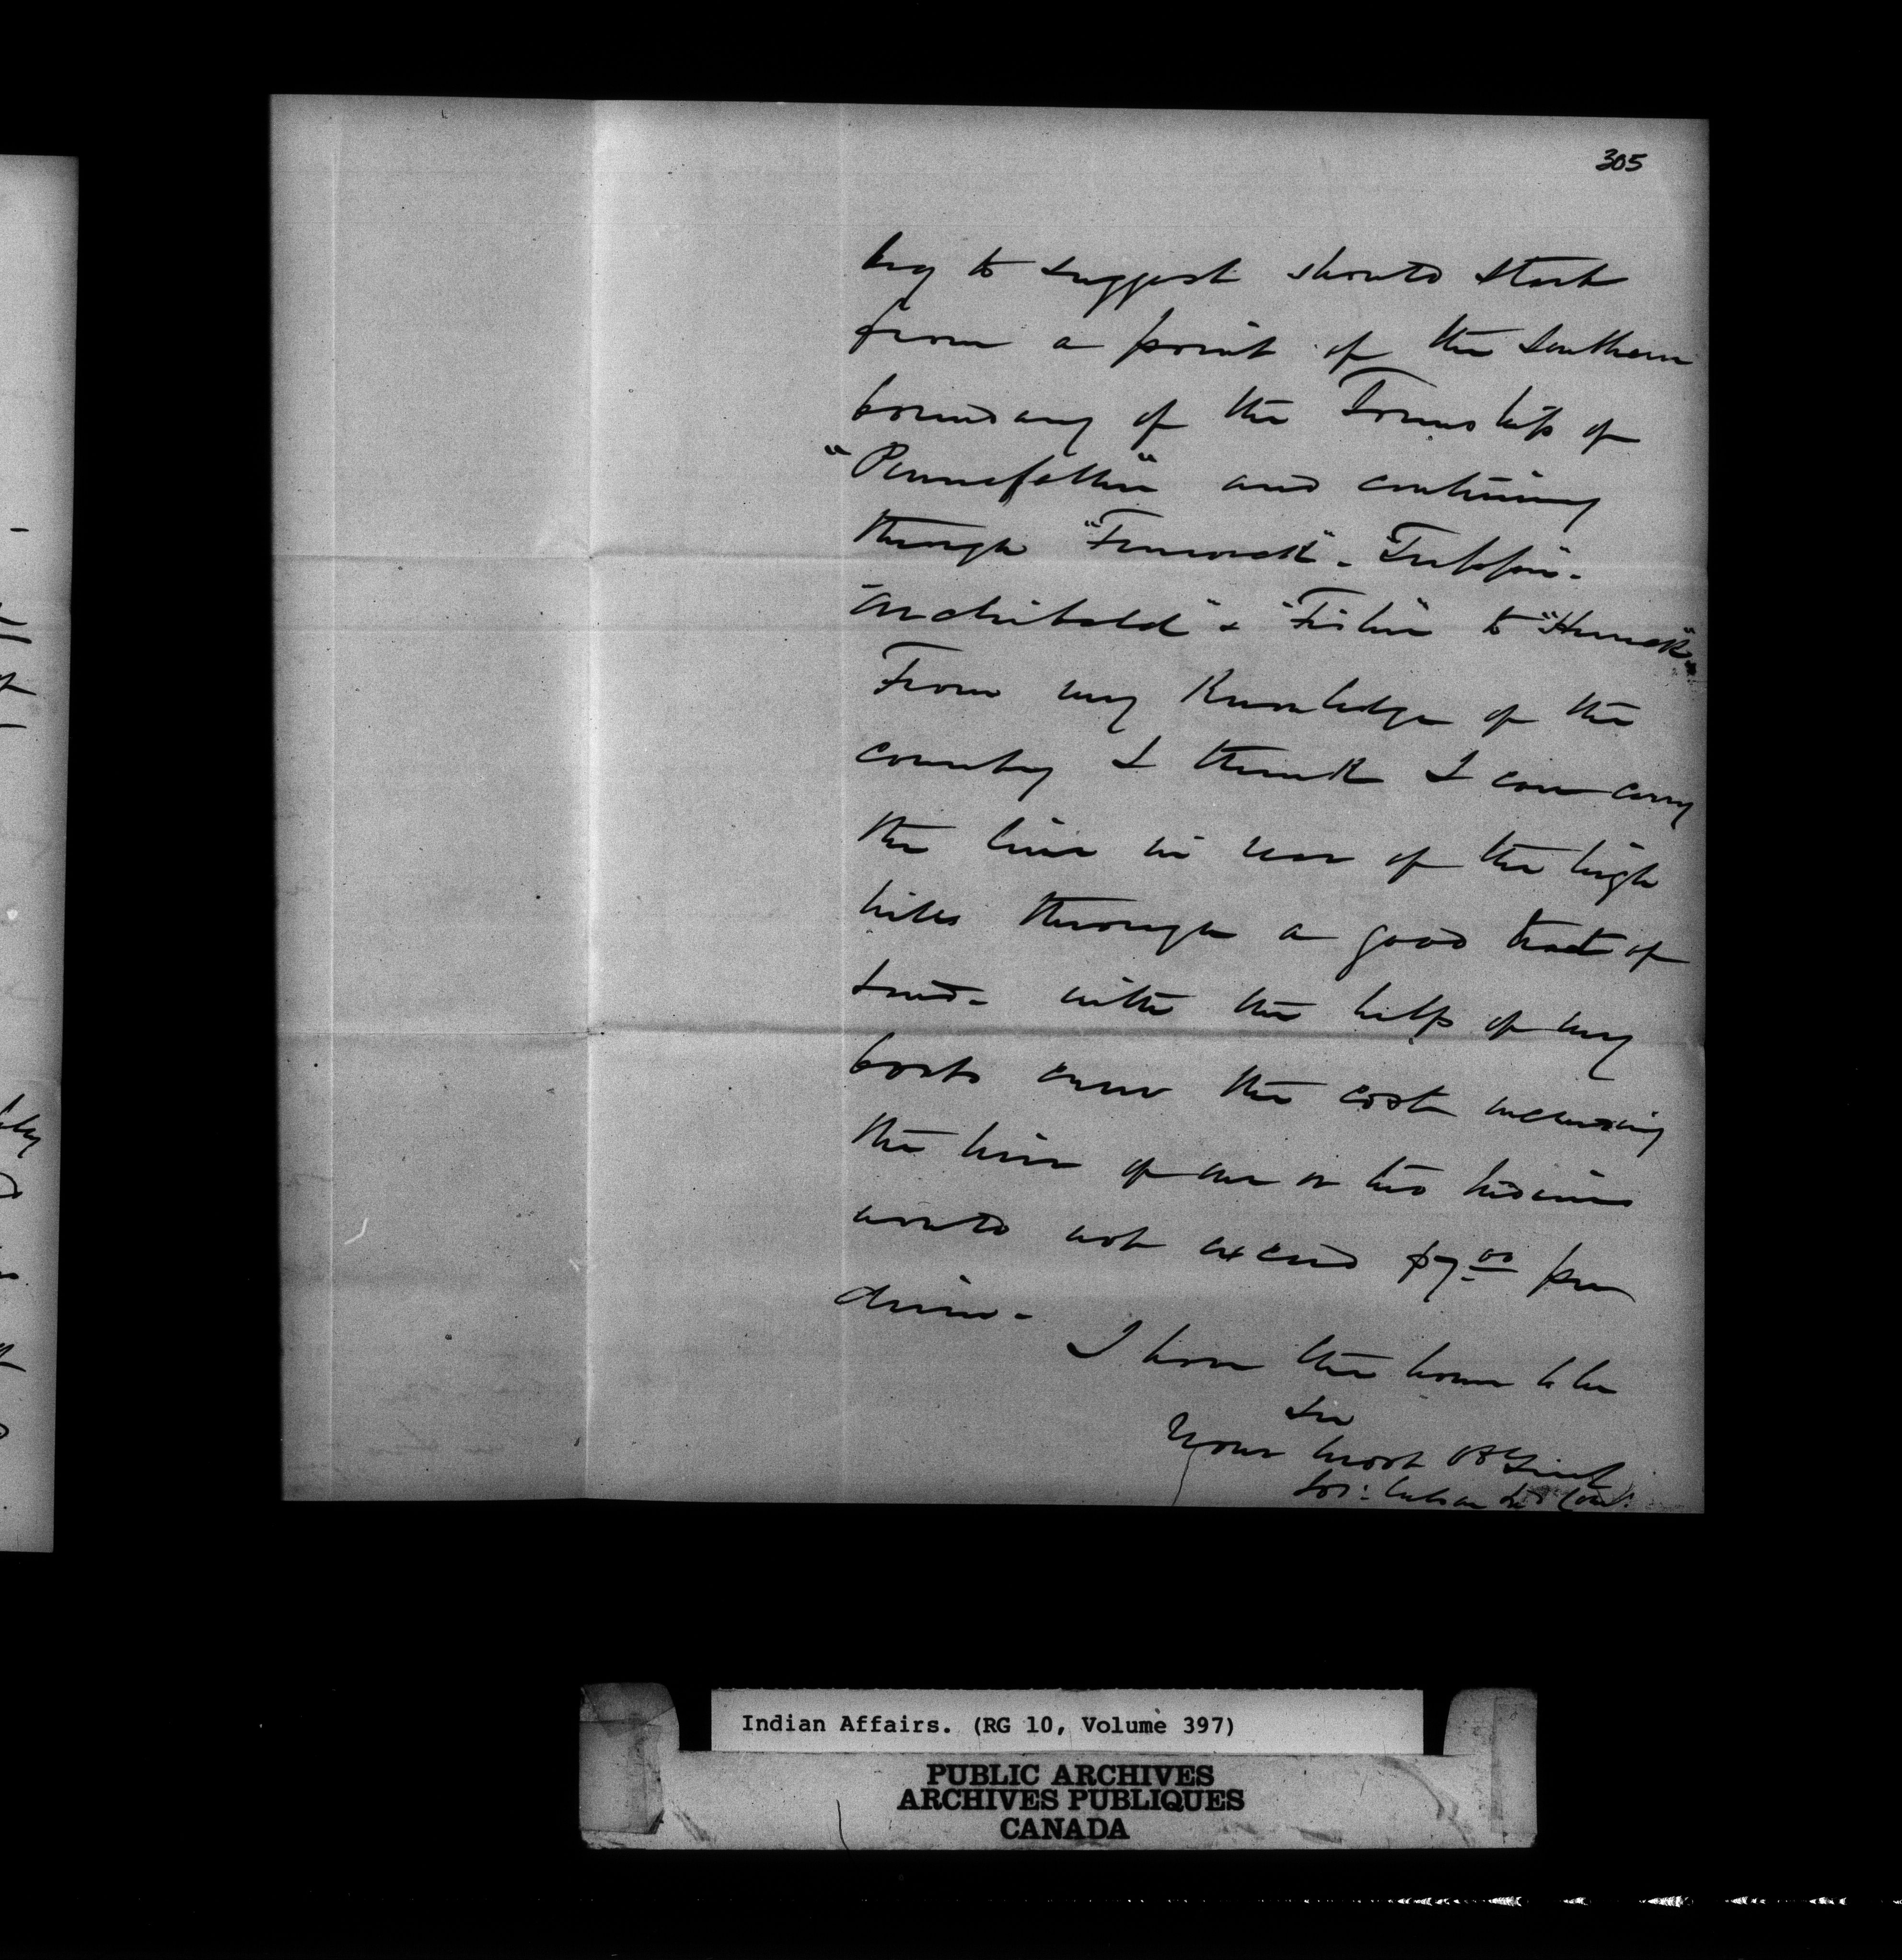 305
beg to suggest should start
from a point of the Southern
boundary of the Township of
"Pennefather" and continuing
through "Fenwick" - Tupper -
Archibald" & "Fisher" to "Herrick".
From my Knowledge of the
country I think I can carry
the line in rear of the high
hills through a good tract of
land - with the help of my
boats crew the cost including
the hire of one or two Indians
would not exceed $7.00 per
diem -
I have the honor to be
Sir
Your most Obt Servt
Indian Affairs. (RG 10, Volume 397)
PUBLIC ARCHIVES
ARCHIVES PUBLIQUES
CANADA